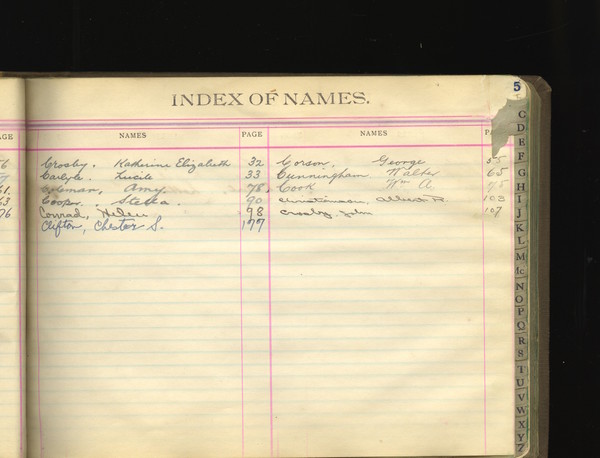 5
INDEX OF NAMES.
AGE NAMES PAGE NAMES
6 Crosby, Katherine Elizabeth 32 Corson, George 55
Carlyle, Lucile 33 Cunningham Walter 65
61 Coleman, Amy 78 Cook Wm A. 78
63 Cooper, Stella. 90 Christinson, Albert R. 103
76 Conrad, Helen 98 Crosby, John 107
Clifton, Chester S. 177
C
D
E
F
G
H
I
J
K
L
M
Mc
N
O
P
Q
R
S
T
U
V
W
X
Y
Z